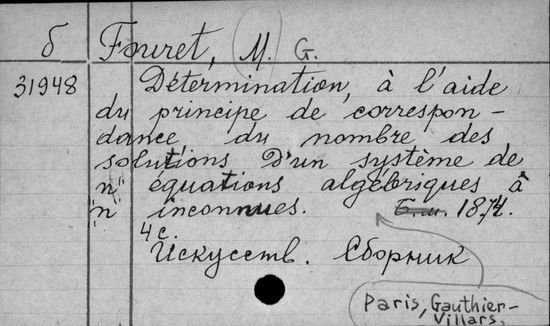 б Fouret, M. G.
31948 Détermination, à l'aide
du principe de correspon-
dance du nombre des
solutions d'un système de
"n" équations algébriques à
"n" inconnues. Б.м. 1874.
4 с.
Искусств. Сборник
Paris, Gauthier-
Villars,